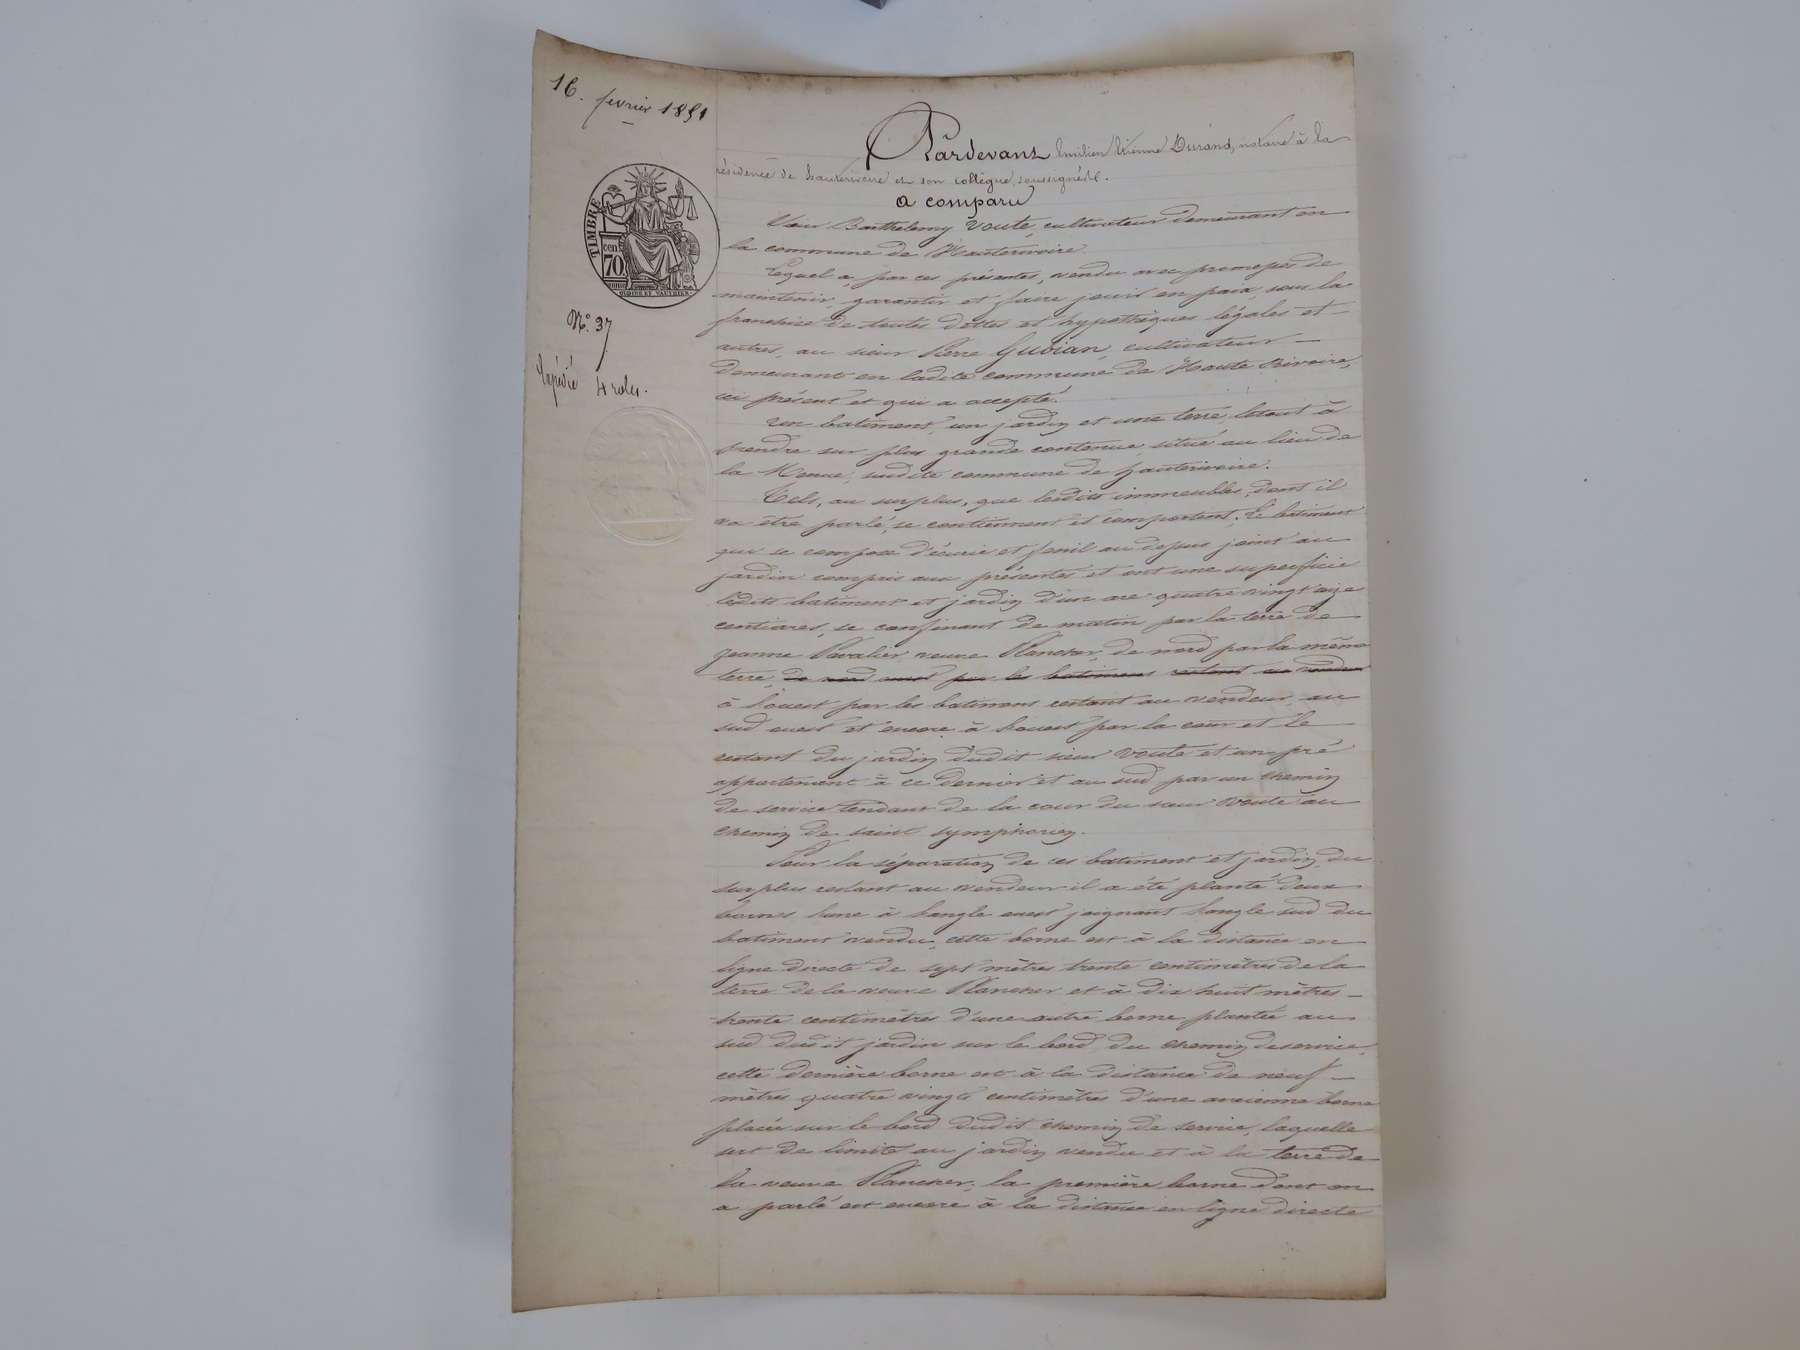 16. février 1851
Pardevant Emilien Etienne Durand, notaire à la
résidence de hauterivoire et son collègue, soussignés.
a comparu
TIMBRE
cen
70
OUDINÉ ET VAUTHIER
Nº 37
Expédié 4 roles.
Sieur Barthelemy Voute, cultivateur demeurant en
la commune de Hauterivoire.
Lequel a, par ces présentes, vendu avec promesses de
maintenir, garantir et faire jouir en paix, sous la
franchise de toutes dettes et hypothèques légales et
autres, au sieur Pierre Gubian, cultivateur
demeurant en ladite commune de Haute Rivoire,
ici présent et qui a accepté.
Un batiment, un jardin et une terre, letout à
prendre sur plus grande contenue, situé au lieu de
la, sudite commune de hauterivoire.
Tels, au surplus, que lesdits immeubles, dont il
va être parlé, se contiennent et comportent. Le batiment
qui se compose d'écurie et fenil au dessus joint au
jardin compris aux présentes et ont une superficie
lesdits batiment et jardin d'un are quatre vingt
centiares, se confinant de matin par la terre de
Jeanne, veuve Plancher, de nord par la même
terre, de nord ouest par les batimens restant au vendeur
à l'ouest par les batimens restant au vendeur, au
sud ouest et encore à l'ouest par la cour et le
restant du jardin dudit sieur Voute et un pré
appartenant à ce dernier et au sud par un chemin
de service tendant de la cour du sieur Voute au
chemin de saint symphorien.
Pour la séparation de ces batiment et jardin, du
surplus restant au vendeur il a été planté deux
bornes, lune à langle ouest joignant langle sud du
batiment vendu, cette borne est à la distance en
ligne directe de sept mètres trente centimètres de la
terre de la veuve Plancher et à dix huit mètres
trente centimètres d'une autre borne plantée au
sud dudit jardin sur le bord du chemin de service,
cette dernière borne est à la distance de neuf
mètres quatre vingts centimètres d'une ancienne borne
placée sur le bord dudit chemin de service, laquelle
sert de limite au jardin vendu et à la terre de
la veuve Plancher, la première borne dont on
a parlé est encore à la distance en ligne directe